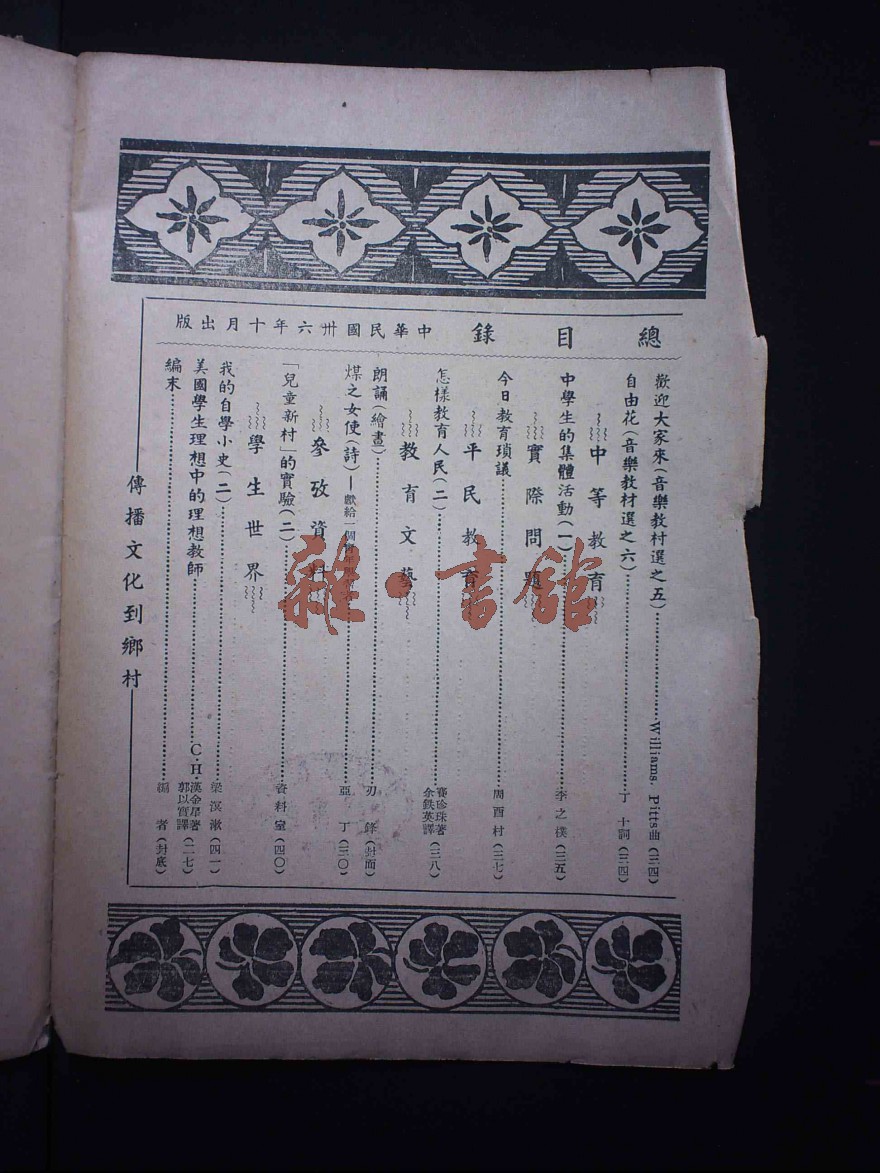 總目錄
中華民國卅六年十月出版
歡迎大家來(音樂教材選之五)……Williams. Pitts曲(三四)
自由花(音樂教材選之六)……丁十詞(三四)
中等教育
中學生的集體活動(一)……李之樸(三五)
實際問題
今日教育瑣議……周酉村(三七)
平民教育
怎樣教育人民(二)……賽珍珠著 余鉄英譯(三八)
教育文藝
朗誦(繪畫)……刃鋒(封面)
煤之女使(詩)—獻給一個……亞丁(三〇)
參攷資料
「兒童新村」的實驗(二)……資料室(四〇)
學生世界
我的自學小史(二)……梁漱溟(四一)
美國學生理想中的理想教師……C.H.漢金斯著 郭以實譯(二七)
編末……編者(封底)
傳播文化到鄉村
雜·書館